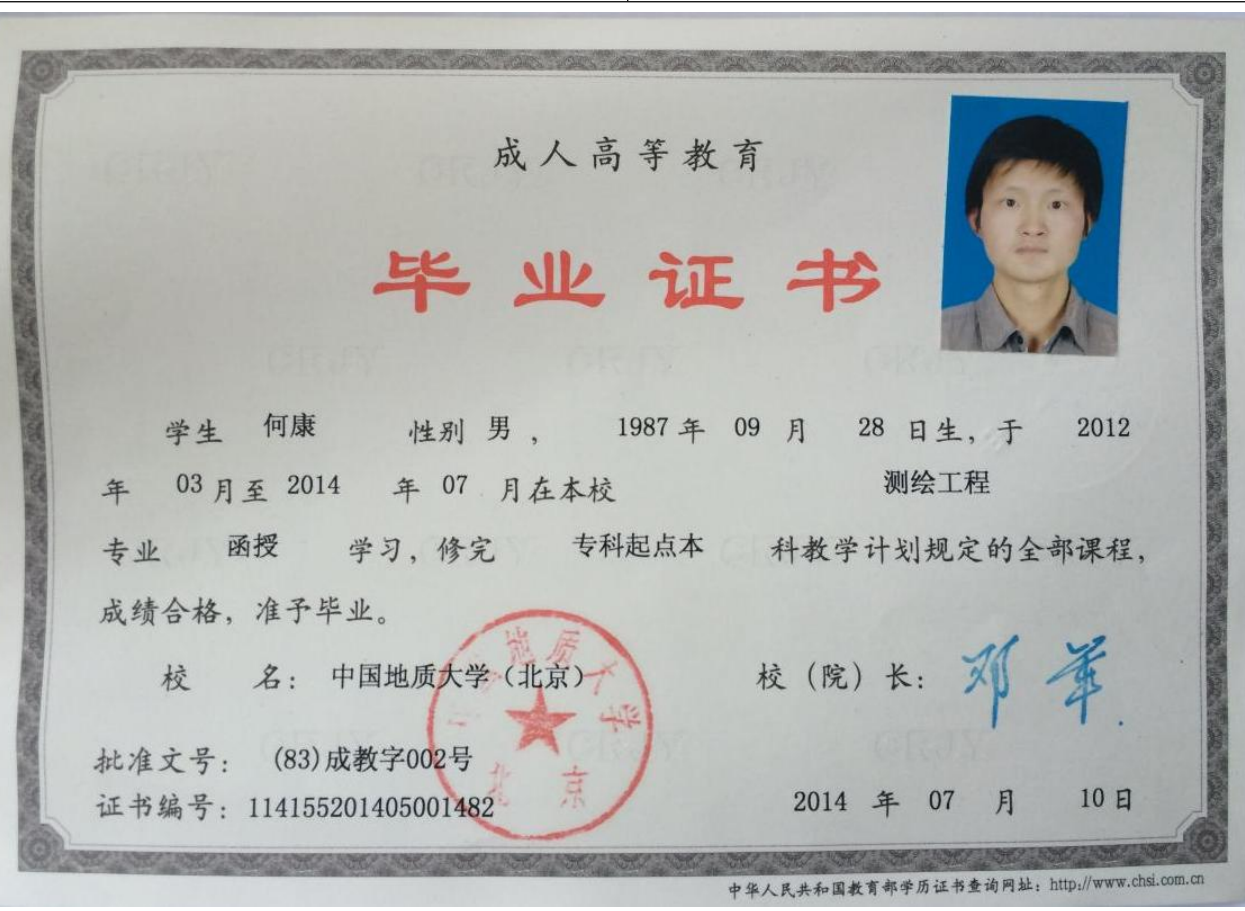 成人高等教育
毕业证书
学生 何康 性别 男 , 1987 年 09 月 28 日生, 于 2012
年 03 月至 2014 年 07 月在本校 测绘工程
专业 函授 学习, 修完 专科起点本 科教学计划规定的全部课程,
成绩合格, 准予毕业。
校 名: 中国地质大学(北京) 校 (院) 长: 邓军
批准文号: (83)成教字002号
证书编号: 114155201405001482 2014 年 07 月 10日
中国地质大学
北京
中华人民共和国教育部学历证书查询网址: http://www.chsi.com.cn